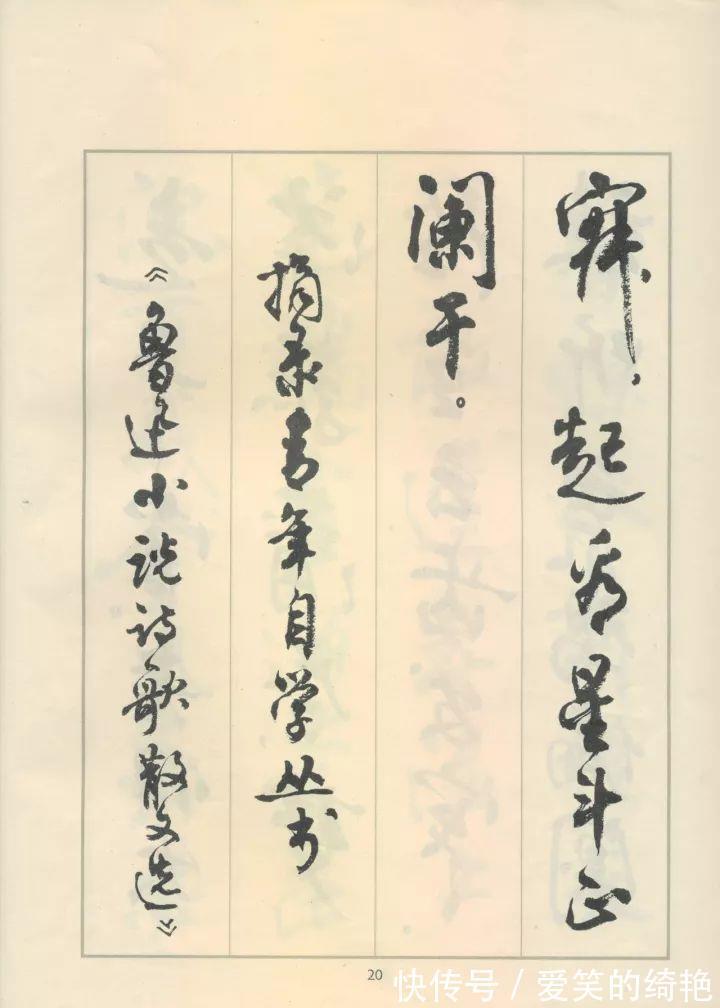 寂，起看星斗正
澜干。
摘录青年自学丛书
《鲁迅小说诗歌散文选》
20
快传号 / 爱笑的绮艳